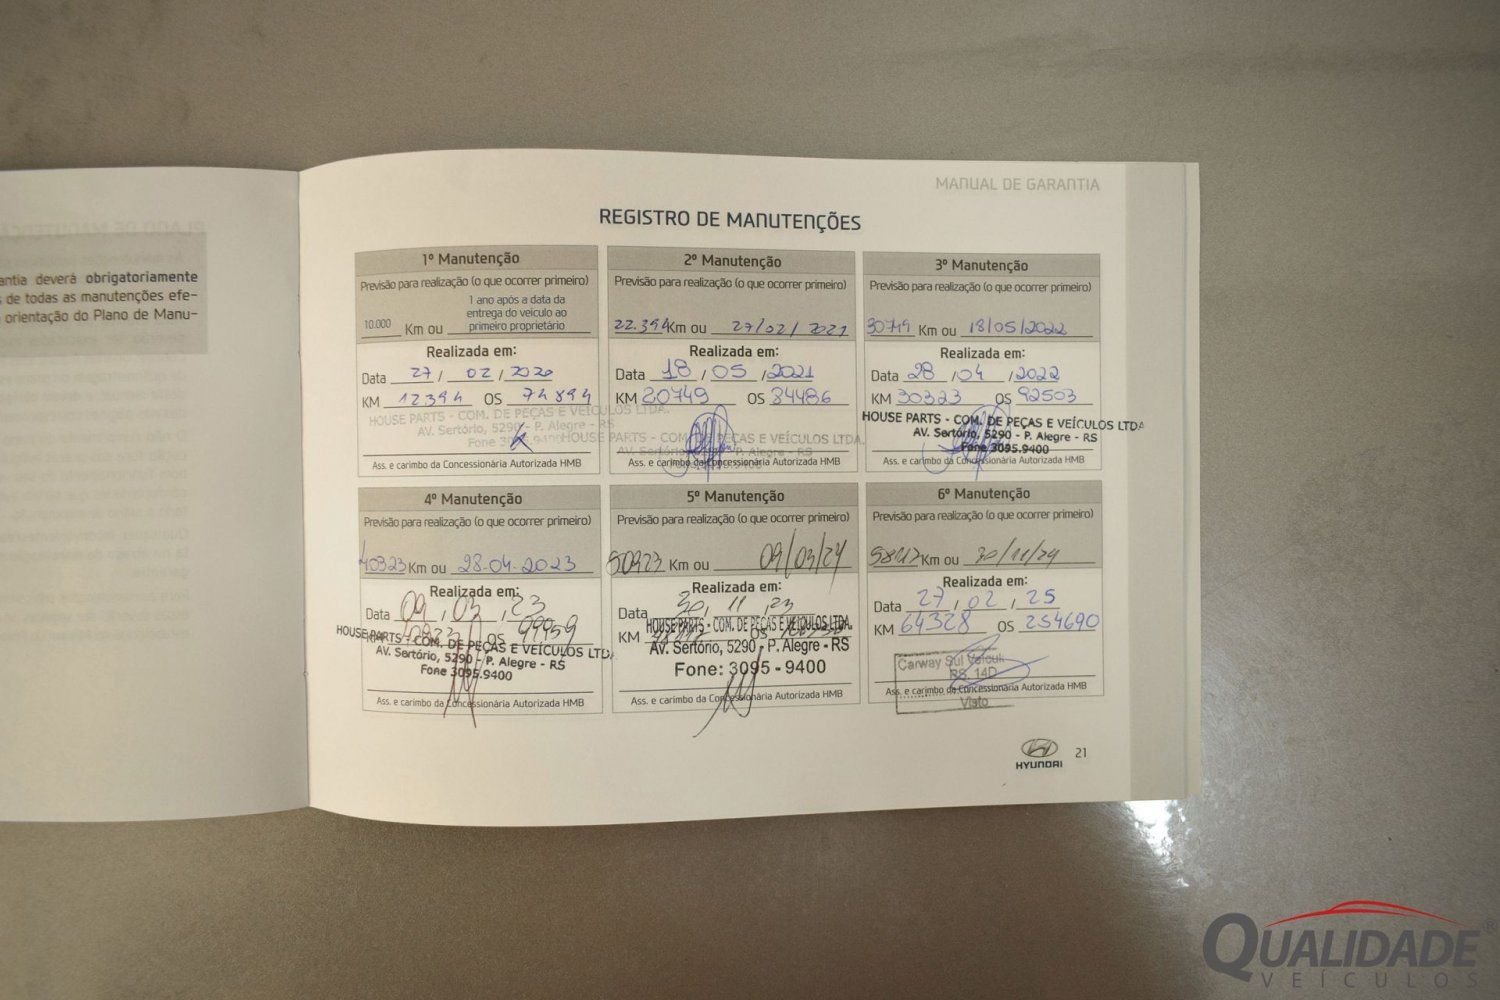 antia deverá obrigatoriamente
s de todas as manutenções efe-
orientação do Plano de Manu-
MANUAL DE GARANTIA
REGISTRO DE MANUTENÇÕES
1º Manutenção
Previsão para realização (o que ocorrer primeiro)
10.000 Km ou 1 ano após a data da
entrega do veículo ao
primeiro proprietário
Realizada em:
Data 27 / 02 / 2020
KM 12394 OS 74894
HOUSE PARTS - COM. DE PEÇAS E VEÍCULOS LTDA.
AV. Sertório, 5290 - P. Alegre - RS
Fone 3095.9400
Ass. e carimbo da Concessionária Autorizada HMB
2º Manutenção
Previsão para realização (o que ocorrer primeiro)
22.394 Km ou 27/02/2021
Realizada em:
Data 18 / 05 / 2021
KM 20749 OS 84486
HOUSE PARTS - COM. DE PEÇAS E VEÍCULOS LTDA.
AV. Sertório, 5290 - P. Alegre - RS
Ass. e carimbo da Concessionária Autorizada HMB
3º Manutenção
Previsão para realização (o que ocorrer primeiro)
30749 Km ou 18/05/2022
Realizada em:
Data 28 / 04 / 2022
KM 30323 OS 92503
HOUSE PARTS - COM. DE PEÇAS E VEÍCULOS LTDA
AV. Sertório, 5290 - P. Alegre - RS
Fone 3095.9400
Ass. e carimbo da Concessionária Autorizada HMB
4º Manutenção
Previsão para realização (o que ocorrer primeiro)
40323 Km ou 28-04-2023
Realizada em:
Data 09 / 03 / 23
KM 40923 OS 99959
HOUSE PARTS - COM. DE PEÇAS E VEÍCULOS LTDA
AV. Sertório, 5290 - P. Alegre - RS
Fone 3095.9400
Ass. e carimbo da Concessionária Autorizada HMB
5º Manutenção
Previsão para realização (o que ocorrer primeiro)
50923 Km ou 09/03/24
Realizada em:
Data 30 / 11 / 23
KM OS
HOUSE PARTS - COM. DE PEÇAS E VEÍCULOS LTDA.
AV. Sertório, 5290 - P. Alegre - RS
Fone: 3095 - 9400
Ass. e carimbo da Concessionária Autorizada HMB
6º Manutenção
Previsão para realização (o que ocorrer primeiro)
58112 Km ou 30/11/24
Realizada em:
Data 27 / 02 / 25
KM 64328 OS 254690
Carway Sul Veícuk
RS. 14D
Ass. e carimbo da Concessionária Autorizada HMB
Visto
HYUNDAI
21
QUALIDADE
VEÍCULOS